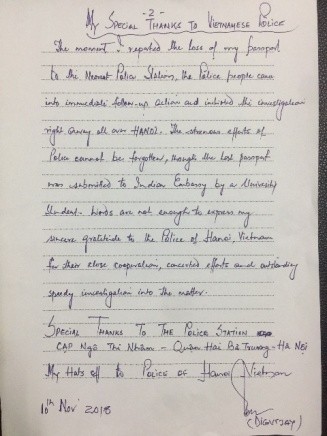 - 2 -
My Special Thanks to Vietnamese Police
The moment I reported the loss of my passport
to the Nearest Police Station, the Police people came
into immediate follow-up action and initiated the investigation
right away all over HANOI. The strenuous efforts of
Police cannot be forgotten, though the lost passport
was submitted to Indian Embassy by a University
Student. Words are not enough to express my
sincere gratitude to the Police of Hanoi, Vietnam
for their close cooperation, concerted efforts and outstanding
speedy investigation into the matter.
Special Thanks To The Police Station
CAP Ngô Thì Nhậm - Quận Hai Bà Trưng - Hà Nội
My Hats off to Police of Hanoi, Vietnam
10th Nov 2018